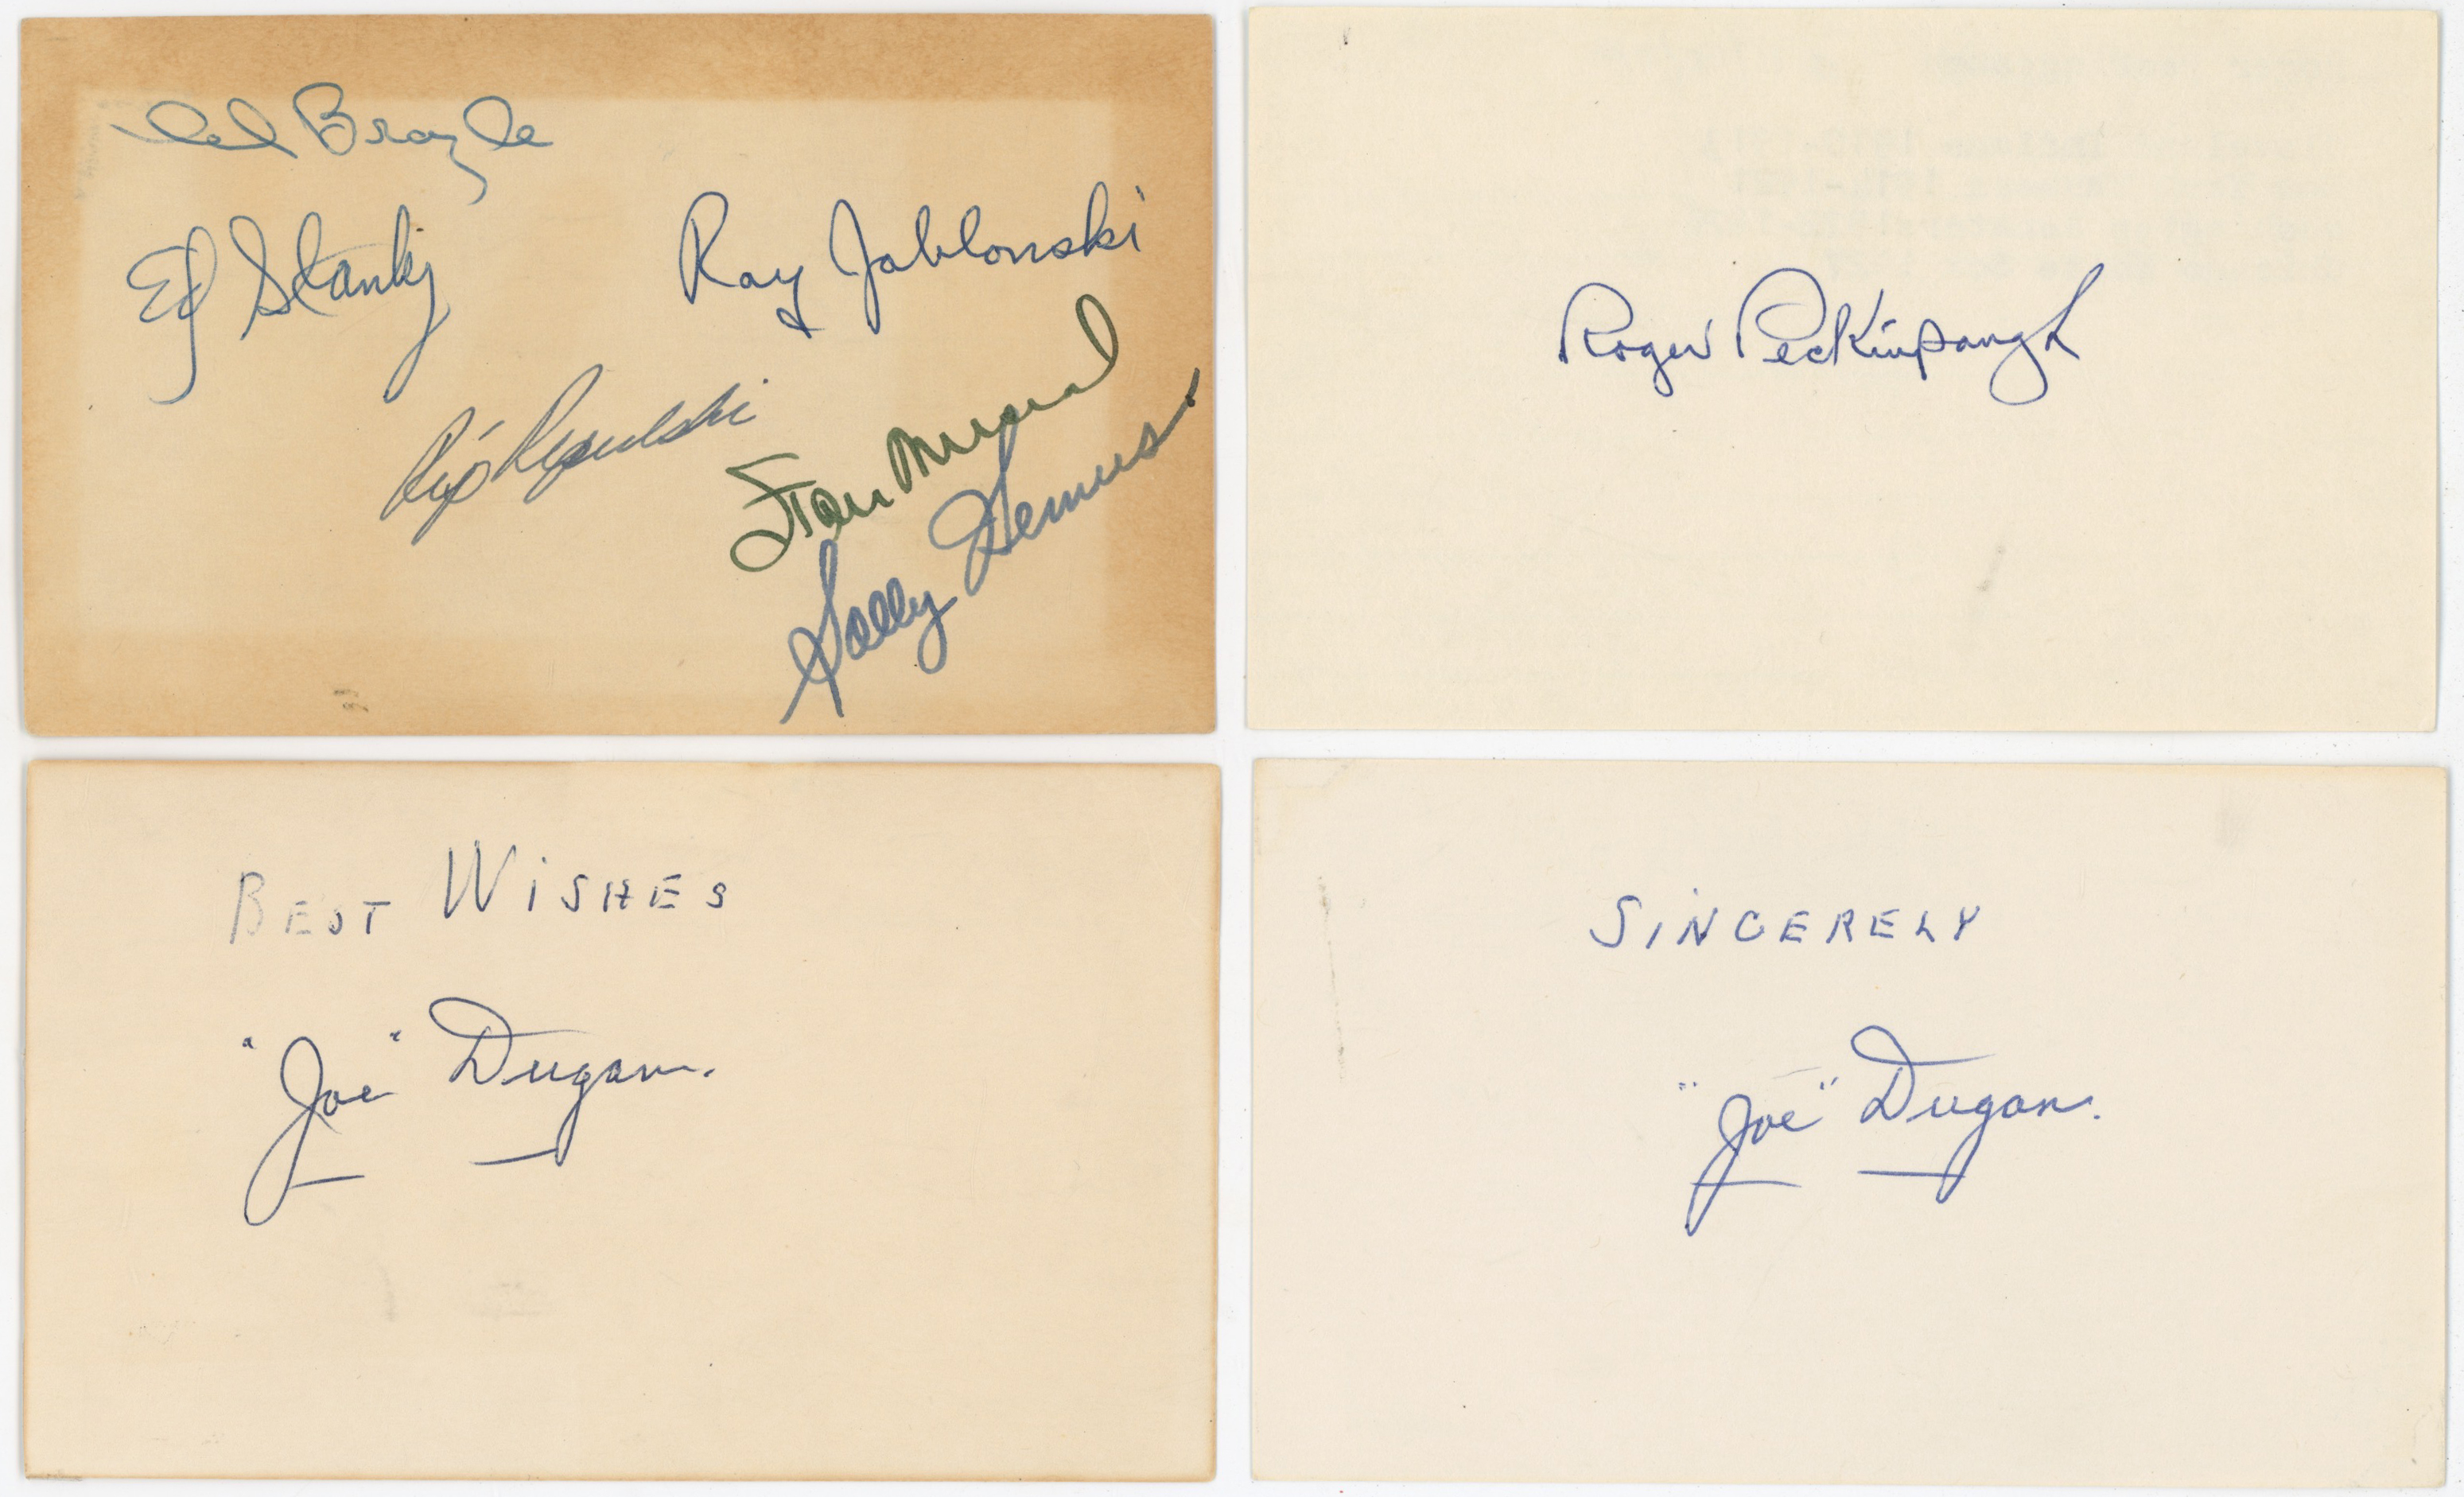 Al Brazle
Ed Stanky
Ray Jablonski
Rip Repulski
Stan Musial
Solly Hemus
Roger Peckinpaugh
BEST WISHES
"Joe" Dugan.
SINCERELY
"Joe" Dugan.